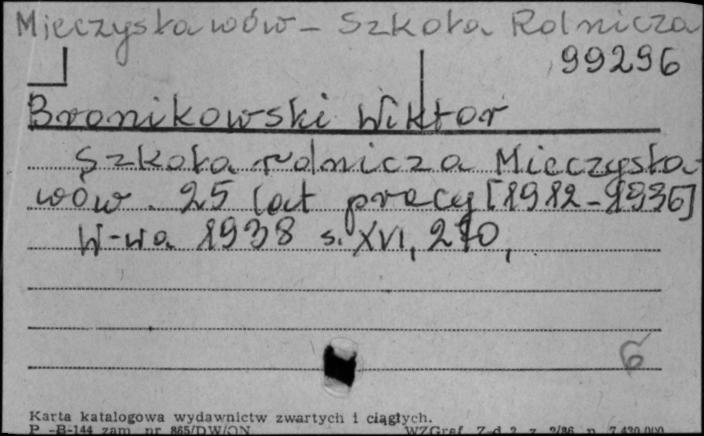 Mieczysławów - Szkoła Rolnicza
99296
Bronikowski Wiktor
Szkoła rolnicza Mieczysła-
wów. 25 lat pracy [1912-1936]
W-wa 1938 s. XVI, 210,
6
Karta katalogowa wydawnictw zwartych i ciągłych.
P-B-144 zam. nr 865/DW/ON WZGraf. Z-d 2 z. 2/86 n. 7.430.000